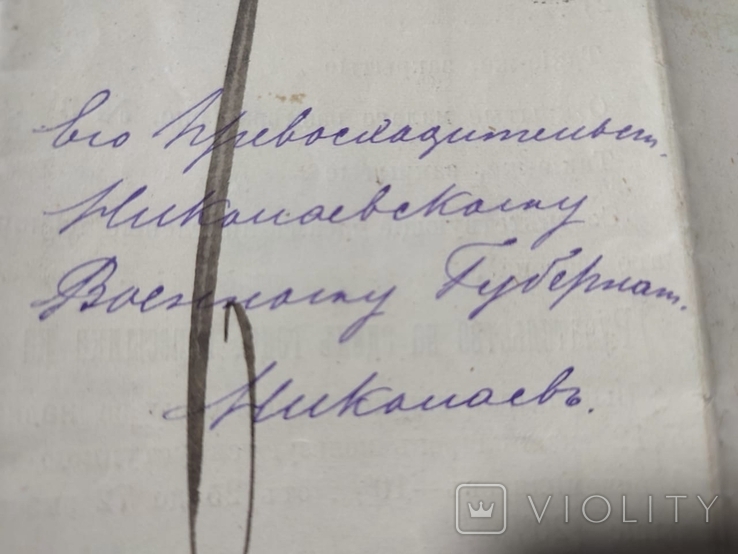 Его Превосходительст.
Николаевскому
Военному Губернат.
Николаевъ.
VIOLITY